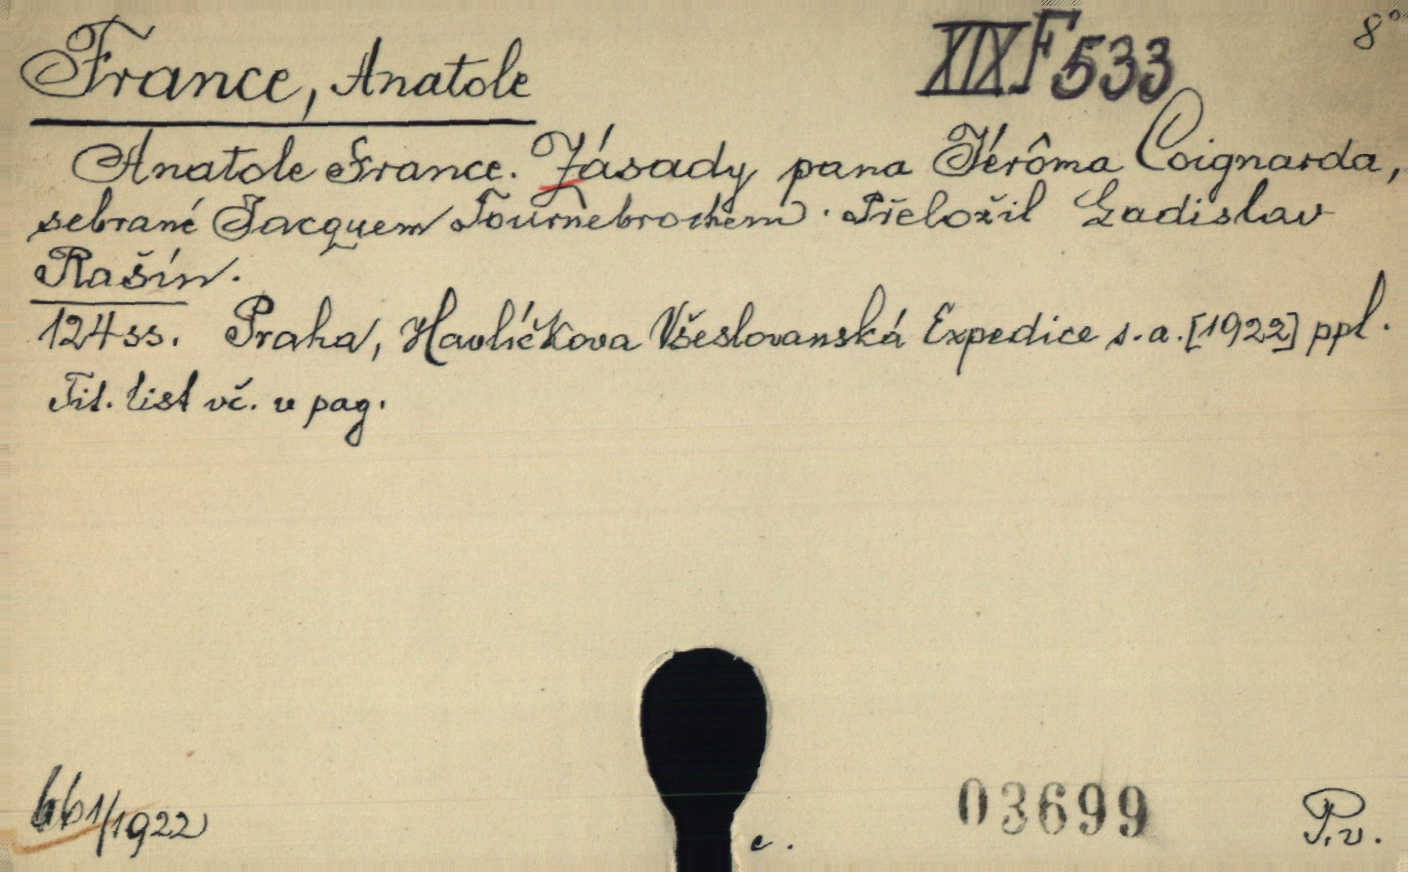 France, Anatole XIX F 533 8°
Anatole France. Zásady pana Jérôma Coignarda,
sebrané Jacquem Tournebrochem. Přeložil Ladislav
Rašín.
124 ss. Praha, Havlíčkova Všeslovanská Expedice s.a. [1922] ppl.
Tit. list vč. v pag.
661/1922 c. 03699 P.v.